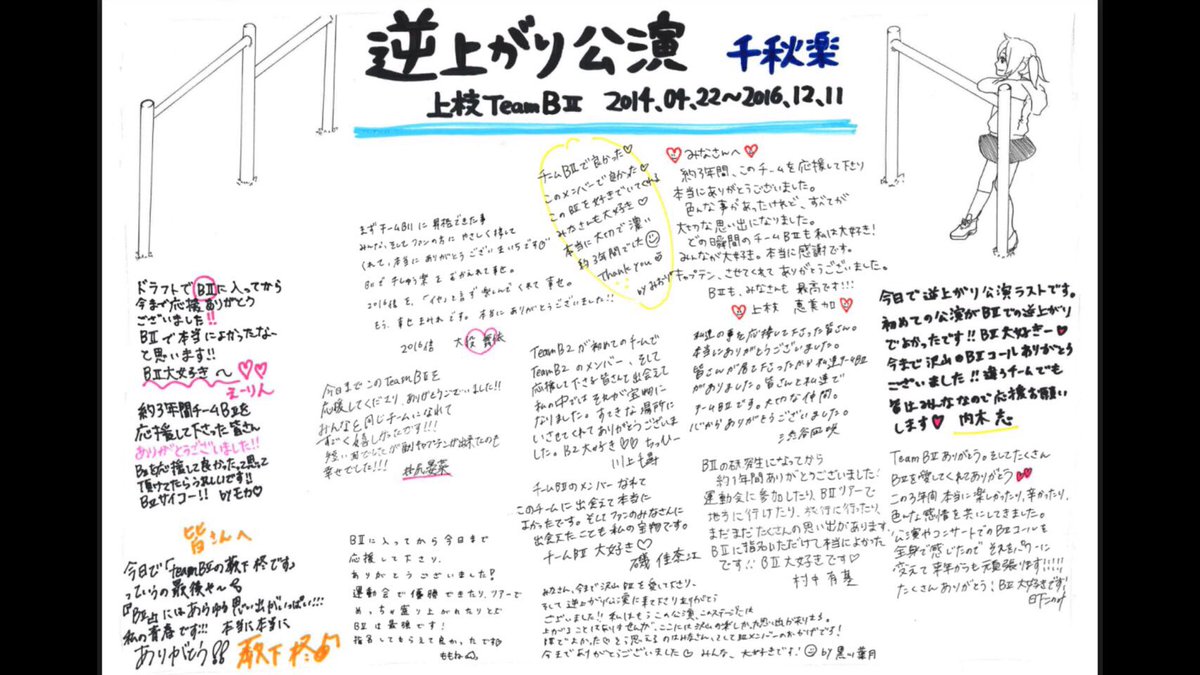 逆上がり公演 千秋楽
上枝TeamBⅡ 2014.04.22～2016.12.11
チームBⅡで良かった♡
このメンバーで良かった♡
このBⅡを好きでいてくれる
みなさんも大好き♡
本当に大切で濃い
約3年間でした
Thank you
by みおり
みなさんへ
約3年間、このチームを応援して下さり
本当にありがとうございました。
色んな事があったけれど、すべてが
大切な思い出になりました。
どの瞬間のチームBⅡも私は大好き!
みんなが大好き。本当に感謝です。
キャプテン、させてくれて ありがとうございました。
BⅡも、みなさんも 最高です!!!
上枝 恵美加
まずチームBⅡに昇格できた事
みんな、そしてファンの方に やさしく接して
くれて、本当に ありがとうございます
BⅡで 千しゅう楽を むかえれて幸せ。
2016倍
ドラフトでBⅡに入ってから
今まで応援ありがとう
ございました!!
BⅡで本当によかったな、
と思います!!
BⅡ大好き〜♡♡
えーりん
約3年間チームBⅡを
応援して下さった皆さん
ありがとうございました!!
BⅡを応援して良かったって思って
頂けてたらうれしいです!!
BⅡサイコー!! byモカ♡
皆さんへ
今日で「TeamBⅡの薮下柊です」
っていうの最後や〜
『BⅡ』にはあらゆる思い出がいっぱい!!!
私の青春です!!! 本当に本当に
ありがとう!!
薮下柊
今日までこのTeamBⅡを
応援してくださり、ありがとうございました!!
みんなと同じチームになれて
すごく嬉しかったです!!!
短い間でしたが副キャプテンが出来たのも
幸せでした!!!
TeamB2 が初めてのチームで
TeamB2 のメンバー、そして
応援して下さる皆さんと出会えて
私の中ではそれが宝物に
なりました。すてきな場所に
いさせてくれてありがとうございま
した。B2大好き♡♡ちっひー
川上千尋
私達の事を応援して下さった皆さん。
本当にありがとうございました。
皆さんが居て下さったから私達チームBⅡ
がありました。皆さんと私達で
チームBⅡです。大切な仲間。
心からありがとうございました。
渋谷凪咲
今日で逆上がり公演ラストです。
初めての公演がBⅡでの逆上がり
でよかったです!! BⅡ大好きー♥
今まで沢山のBⅡコールありがとう
ございました!! 違うチームでも
皆はみんななので応援お願い
します♥ 内木 志
チームBⅡのメンバー なれて
このチームに出会えて本当に
よかったです。そしてファンのみなさんに
出会えたことも私の宝物です。
チームBⅡ 大好き♡
磯 佳奈江
BⅡの研究生になってから
約1年間ありがとうございました!
運動会に参加したり、BⅡツアーで
地方に行けたり、旅行に行ったり、
まだまだたくさんの思い出があります。
BⅡに指名いただけて本当によかった
です!! BⅡ大好きです♡
村中 有基
TeamBⅡありがとう。そしてたくさん
BⅡを愛してくれてありがとう
この3年間本当に楽しかったり、辛かったり、
色んな感情を共にしてきました。
公演やコンサートでのBⅡコールを
全身で感じたので それをパワーに
変えて来年からも頑張ります!!!!!
たくさんありがとう! BⅡ大好きです!
BⅡに入ってから今日まで
応援して下さり、
ありがとうございました!
運動会で優勝できたり、ツアーで
めっちゃ盛り上がれたりとで
BⅡは最強です!
指名してもらえて良かったです
ももね
みなさん、今まで沢山BⅡを愛して下さり、
そして逆上がり公演に来て下さりありがとう
ございました!! 私はもうこの公演、このステージには
上がることはありませんが、ここには沢山の楽しかった思い出が有ります。
今までありがとうございました♡ みんな、大好きです! by 黒川葉月